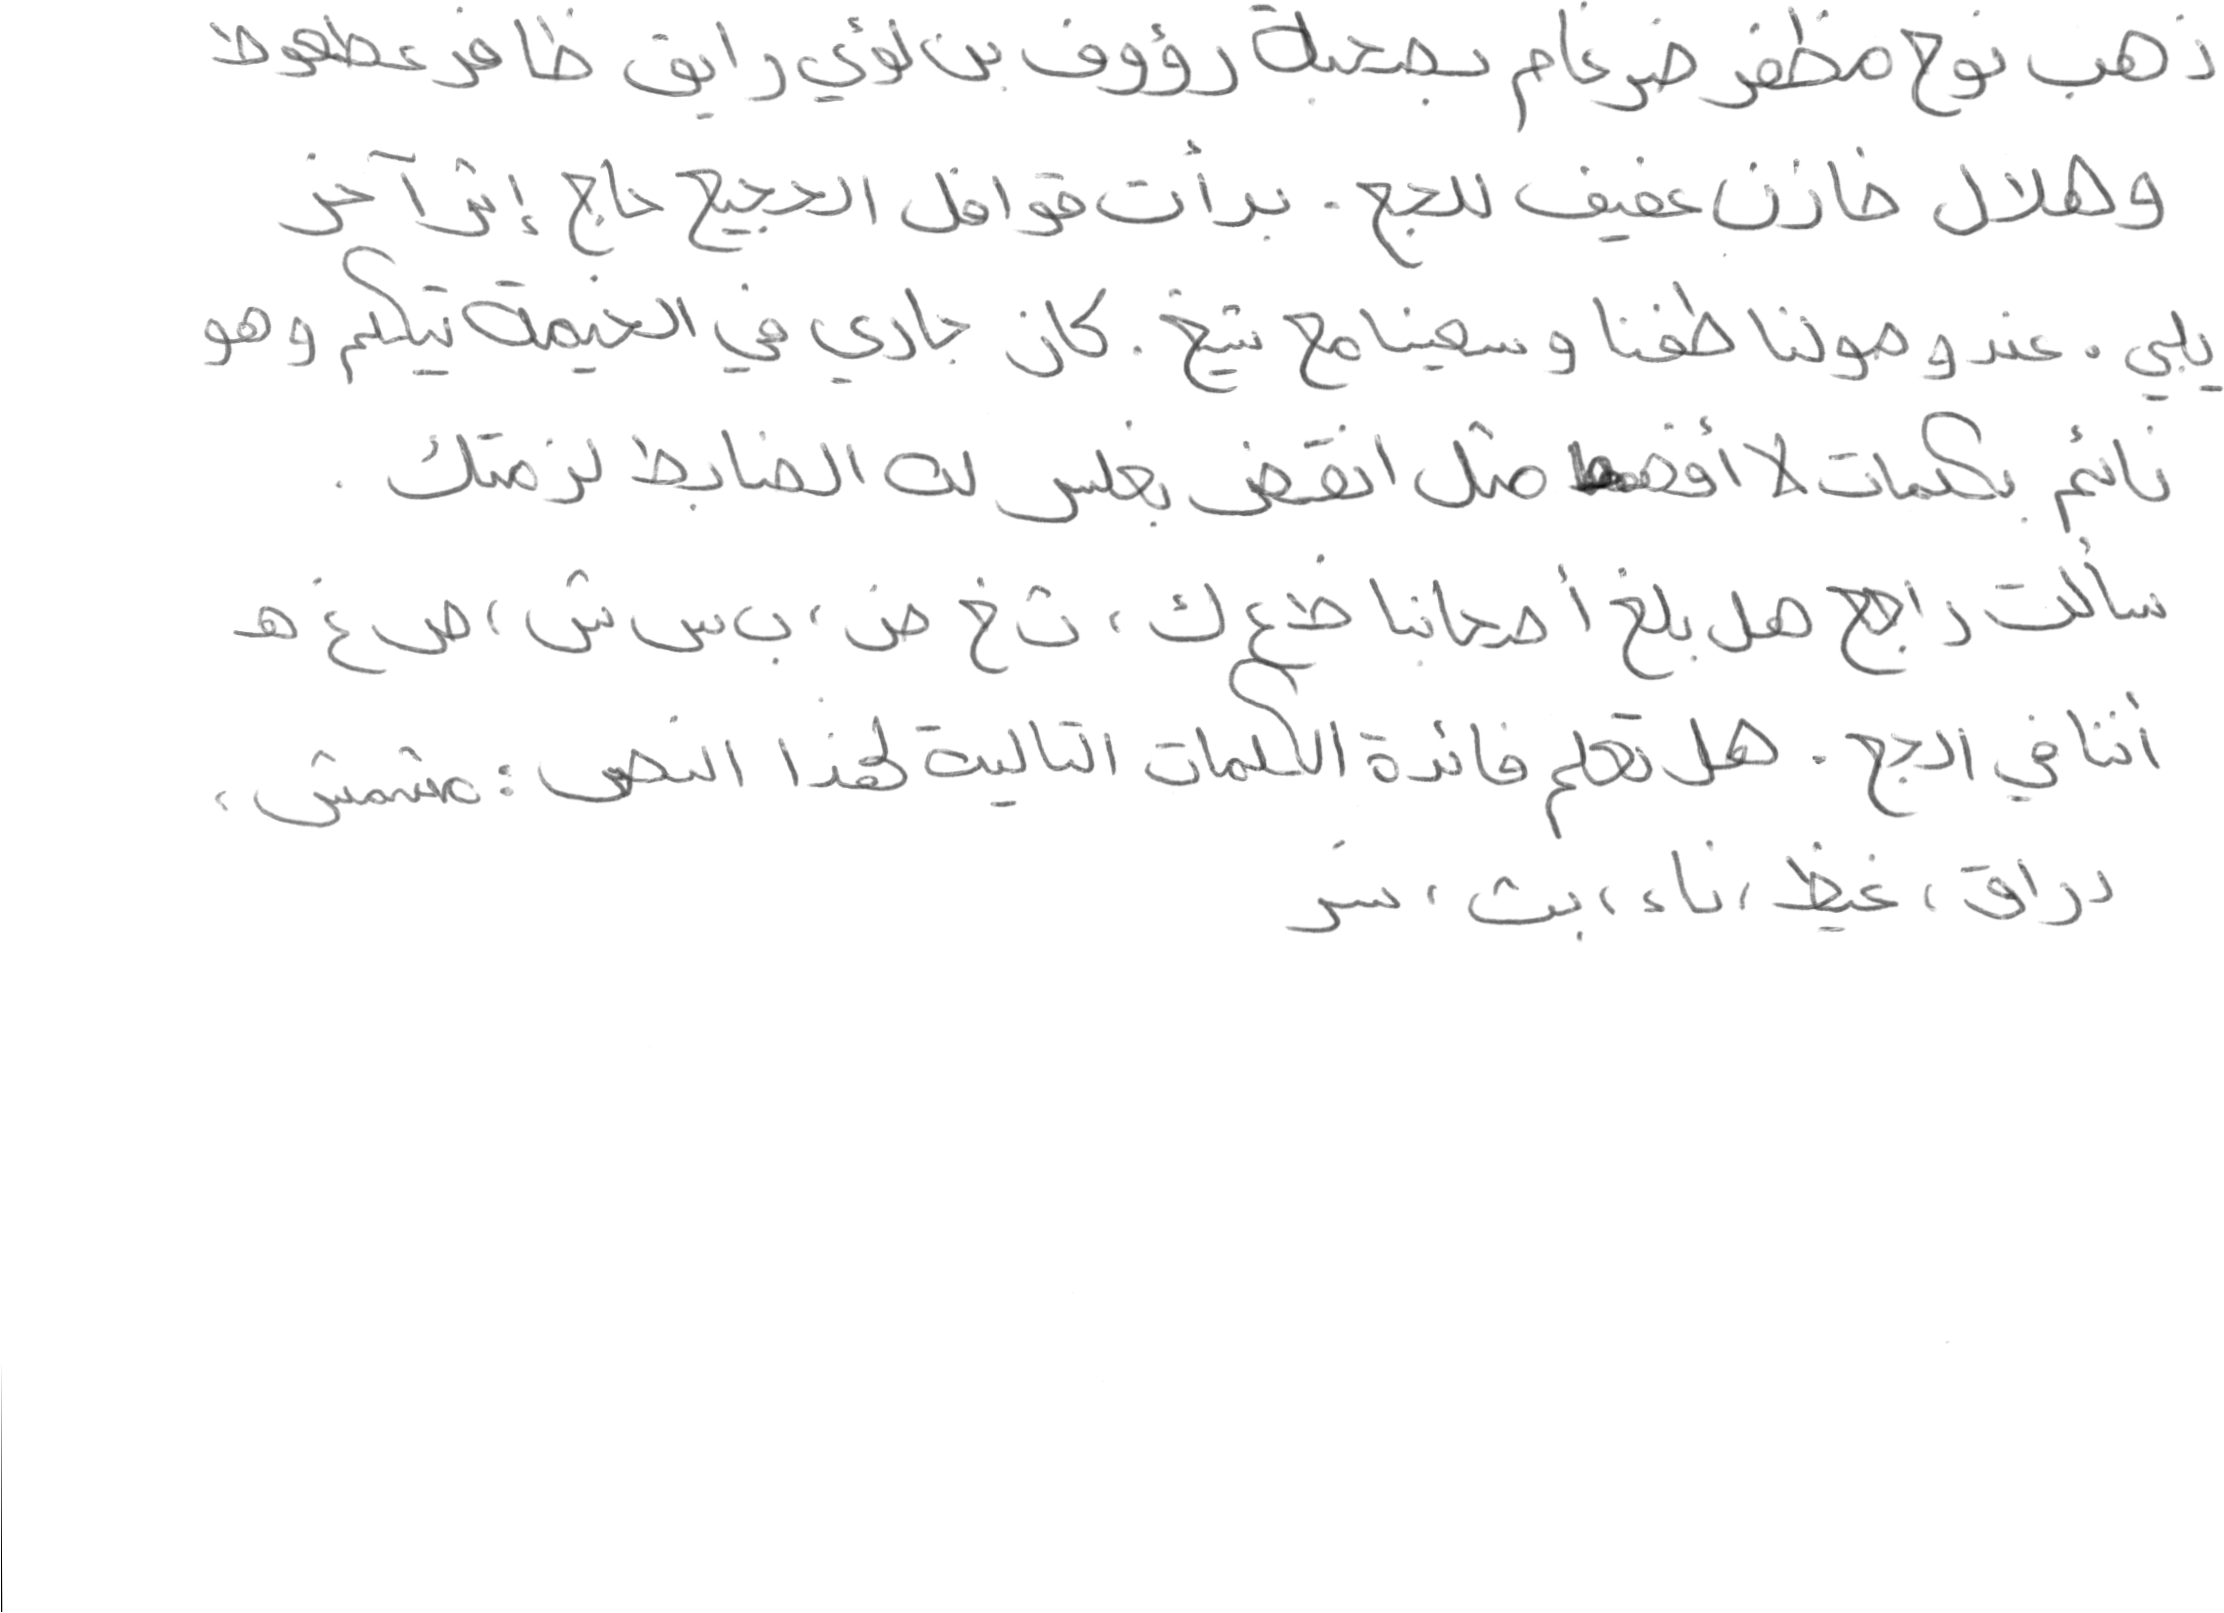 ذهب نوح مظفر ضرغام بصحبة رؤوف بن لؤي رايق ظافر عطعوط
وهلال خازن عفيف للحج. بدأت قوافل الحجيج حاج إثر آخر
يلبي. عند وصولنا طفنا وسعينا مع شيخ. كان جاري في الخيمة يتكلم وهو
نائم بكلمات لا أفهمها مثل انقض بغلس لك الضابط لزمتك.
سألت راجح هل بلغ أصحابنا ظ ع ك، ث خ ض، ب س ش، ص غ هـ
أننا في الحج. هل تعلم فائدة الكلمات التالية لهذا النص: مشمش،
دراق، غيظ، ناء، بث، ستر